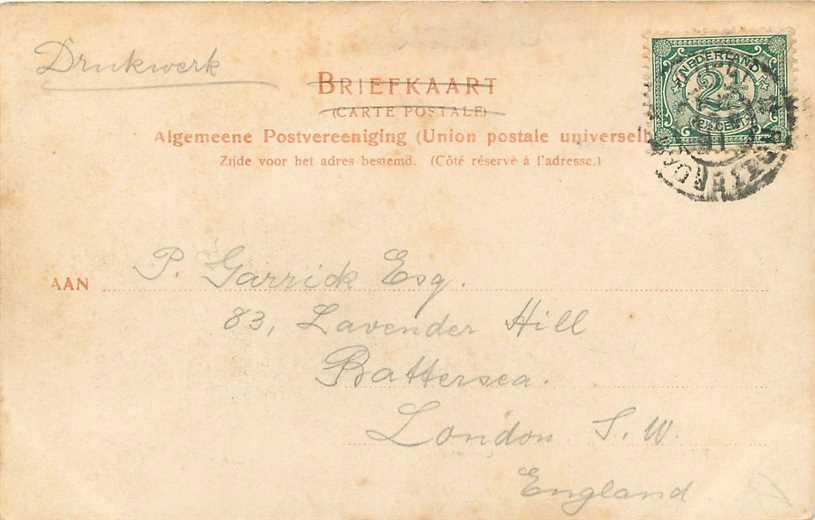 Drukwerk
BRIEFKAART
(CARTE POSTALE)
Algemeene Postvereeniging (Union postale universelle
Zijde voor het adres bestemd. (Côté réservé à l'adresse.)
NEDERLAND
2½
2½ CENT
AAN P. Garrick Esq.
83, Lavender Hill
Battersea.
London S. W.
England